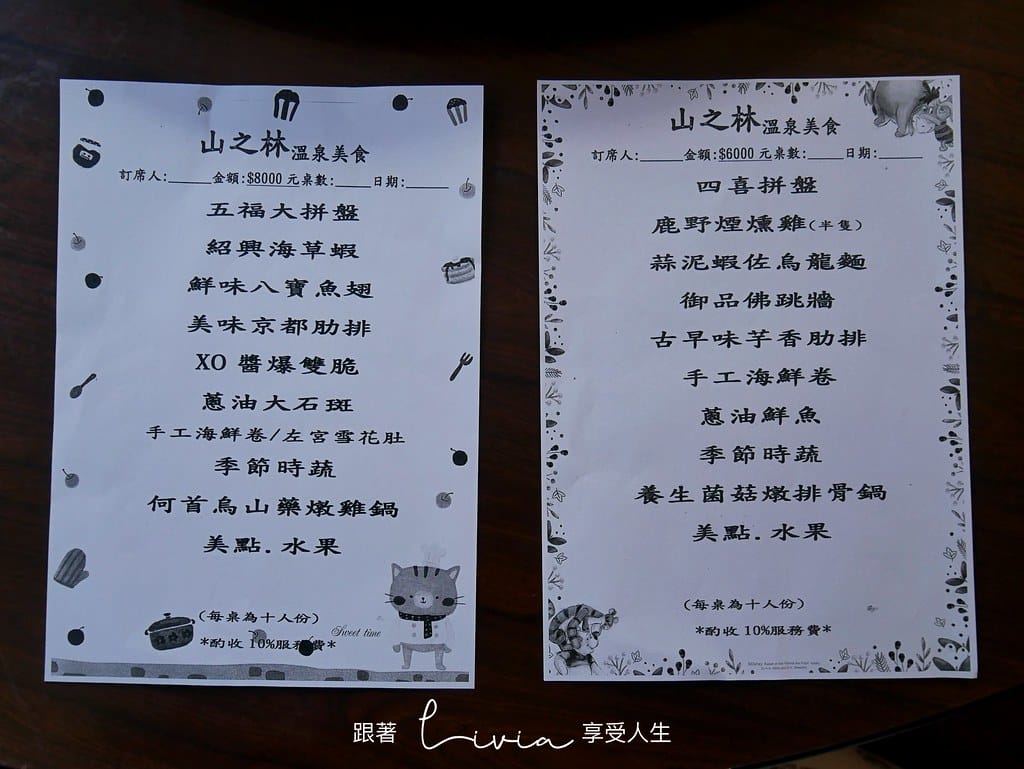 山之林溫泉美食
訂席人:_____金額:$8000 元桌數:____日期:_____
五福大拼盤
紹興海草蝦
鮮味八寶魚翅
美味京都肋排
XO 醬爆雙脆
蔥油大石斑
手工海鮮卷/左宮雪花肚
季節時蔬
何首烏山藥燉雞鍋
美點.水果
(每桌為十人份)
Sweet time
*酌收 10%服務費*
山之林溫泉美食
訂席人:_____金額:$6000 元桌數:____日期:_____
四喜拼盤
鹿野煙燻雞(半隻)
蒜泥蝦佐烏龍麵
御品佛跳牆
古早味芋香肋排
手工海鮮卷
蔥油鮮魚
季節時蔬
養生菌菇燉排骨鍋
美點.水果
(每桌為十人份)
*酌收 10%服務費*
跟著 Livia 享受人生